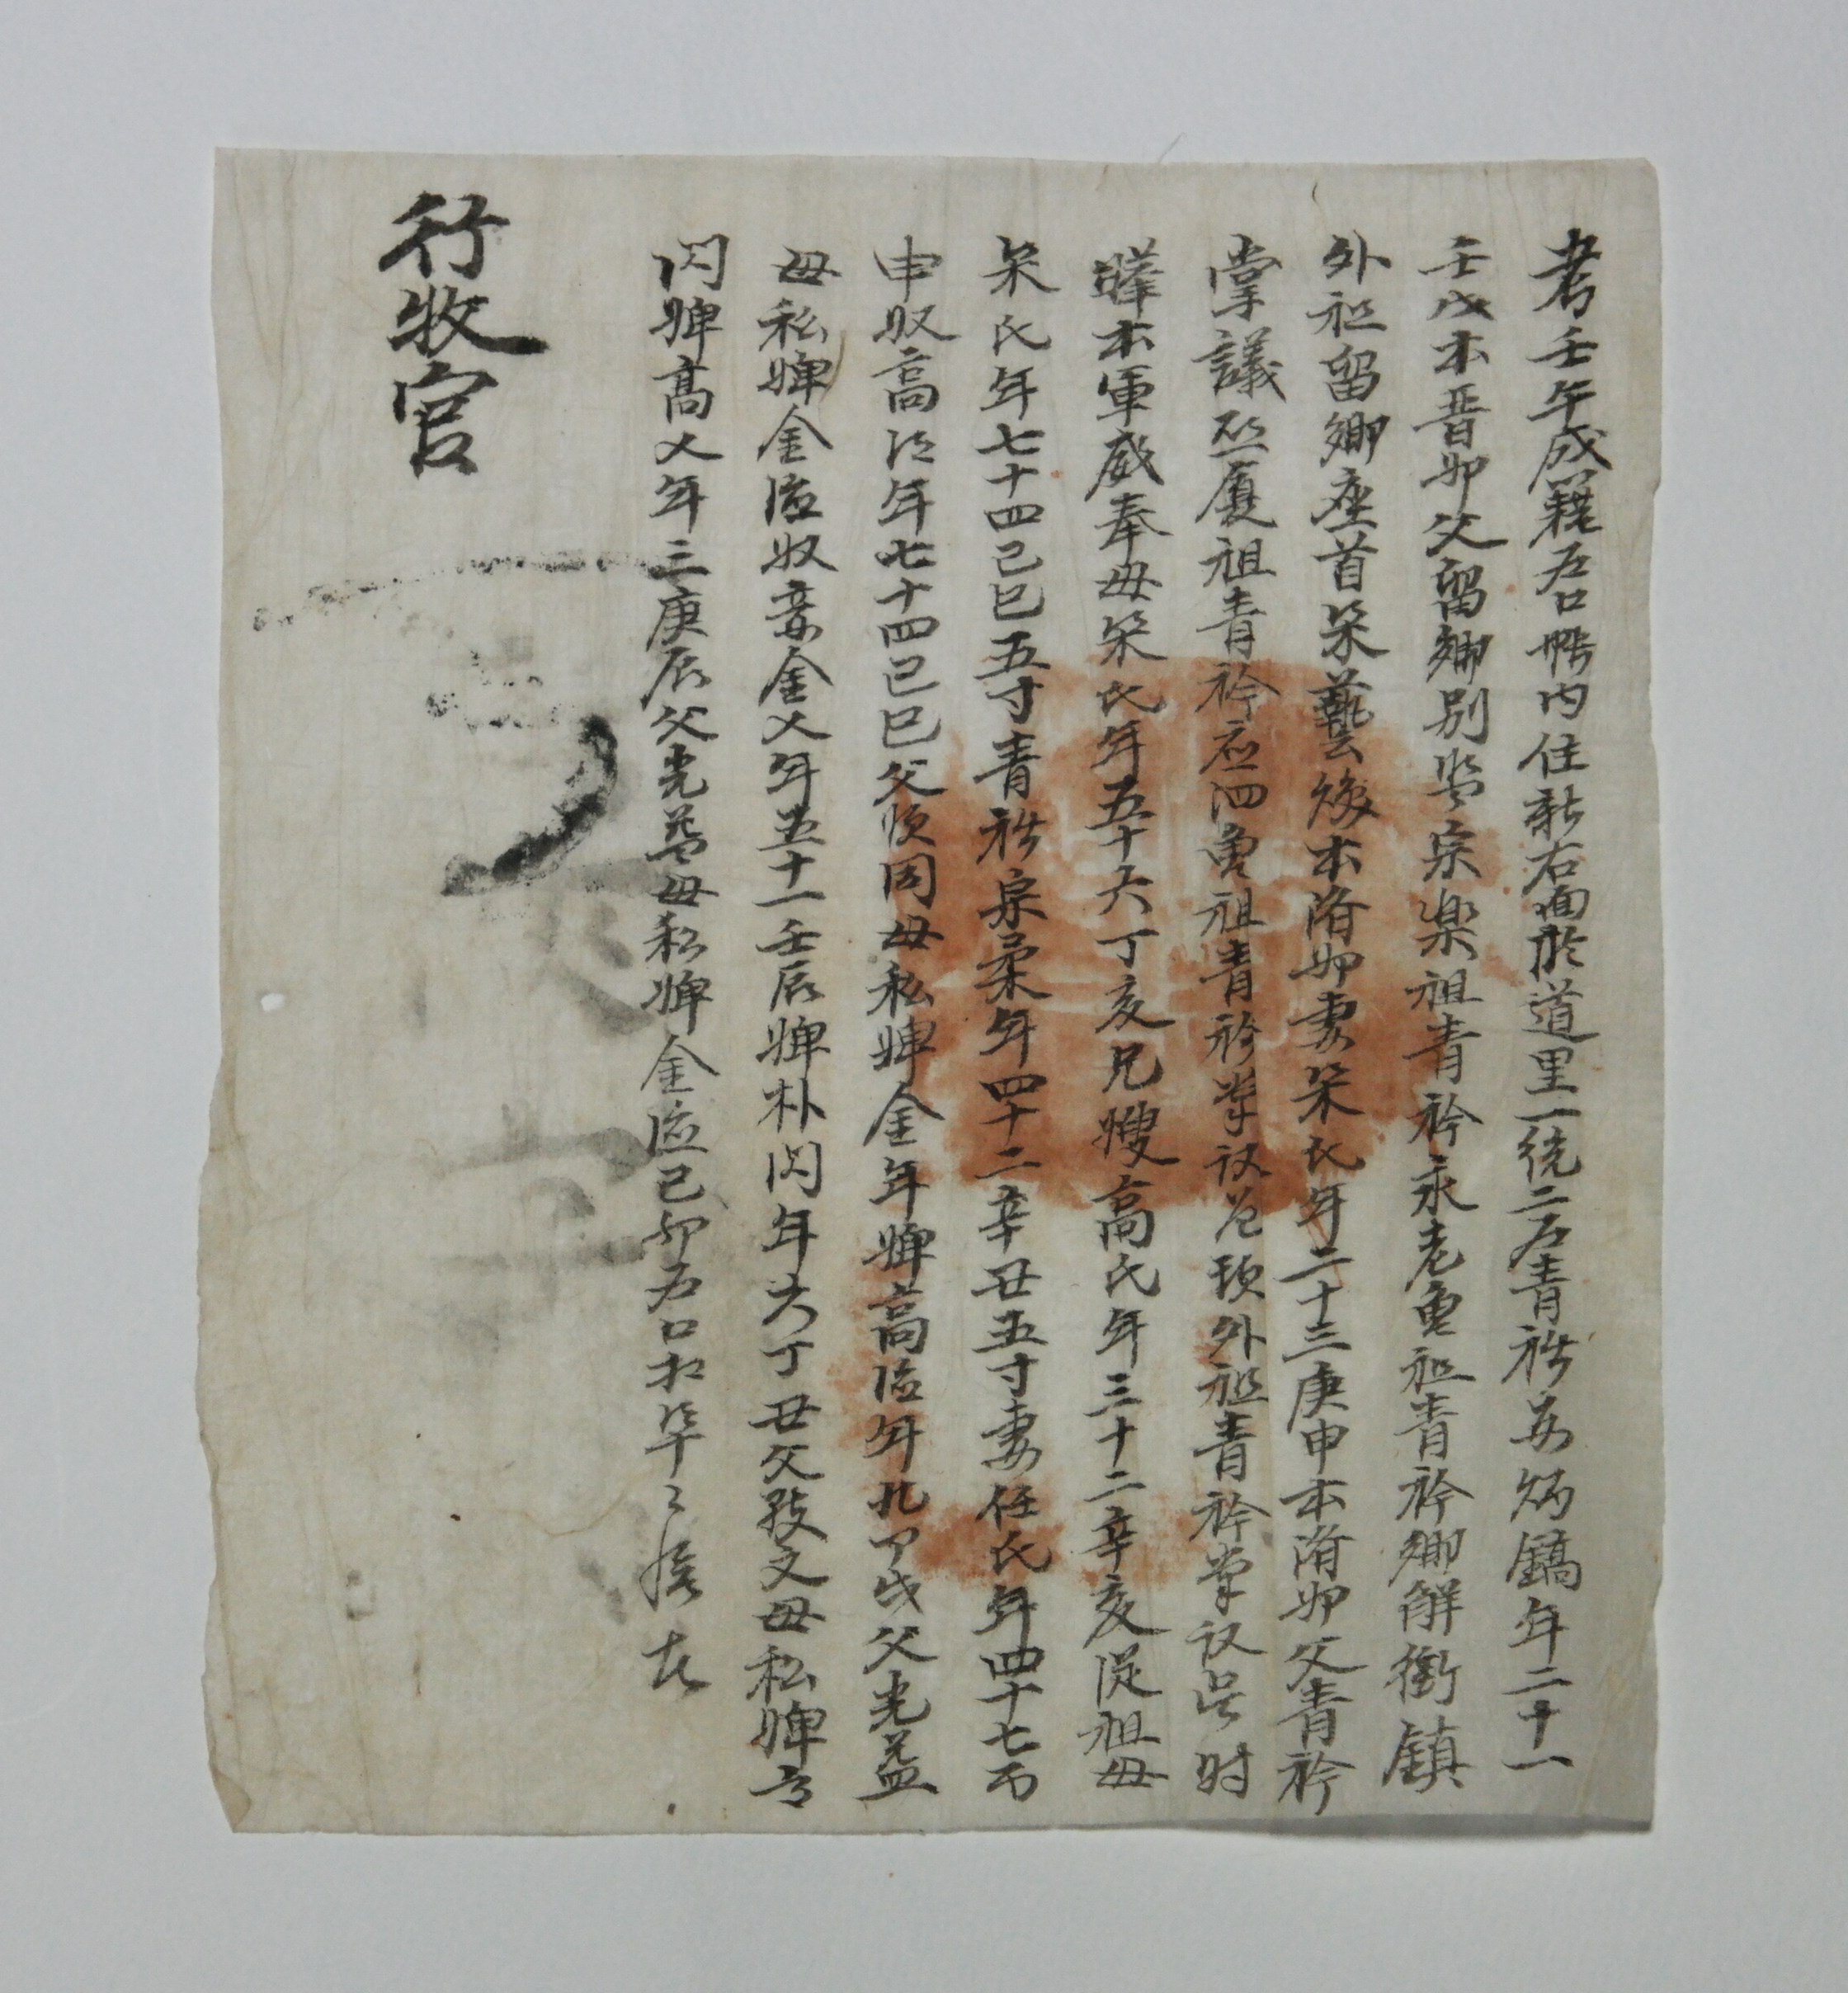 考壬午成籍戶口帳內住新右面於道里一統二戶青衿姜炳鎬年二十一
壬戌本晋州父留鄕別監宗樂祖青衿永老曾祖青衿鄕解銜鎮
外祖留鄕座首宋藝煥本濟州妻宋氏年二十三庚申本濟州父青衿
掌議丕廈祖青衿應泗曾祖青衿掌议 外祖青衿掌议吳时
曄本軍威奉母宋氏年五十六丁亥兄嫂高氏年三十二辛亥從祖母
宋氏年七十四己巳五寸青衿宗柔年四十二辛丑五寸妻任氏年四十七丙
申奴高 年七十四己巳父順周母私婢金年婢高 年九甲戌父光益
母私婢金 奴妻金 年五十一壬辰婢朴闪年六丁丑父敍文母私婢高
闪婢高 年三庚辰父光益母私婢金 己卯戶口相準
行牧官